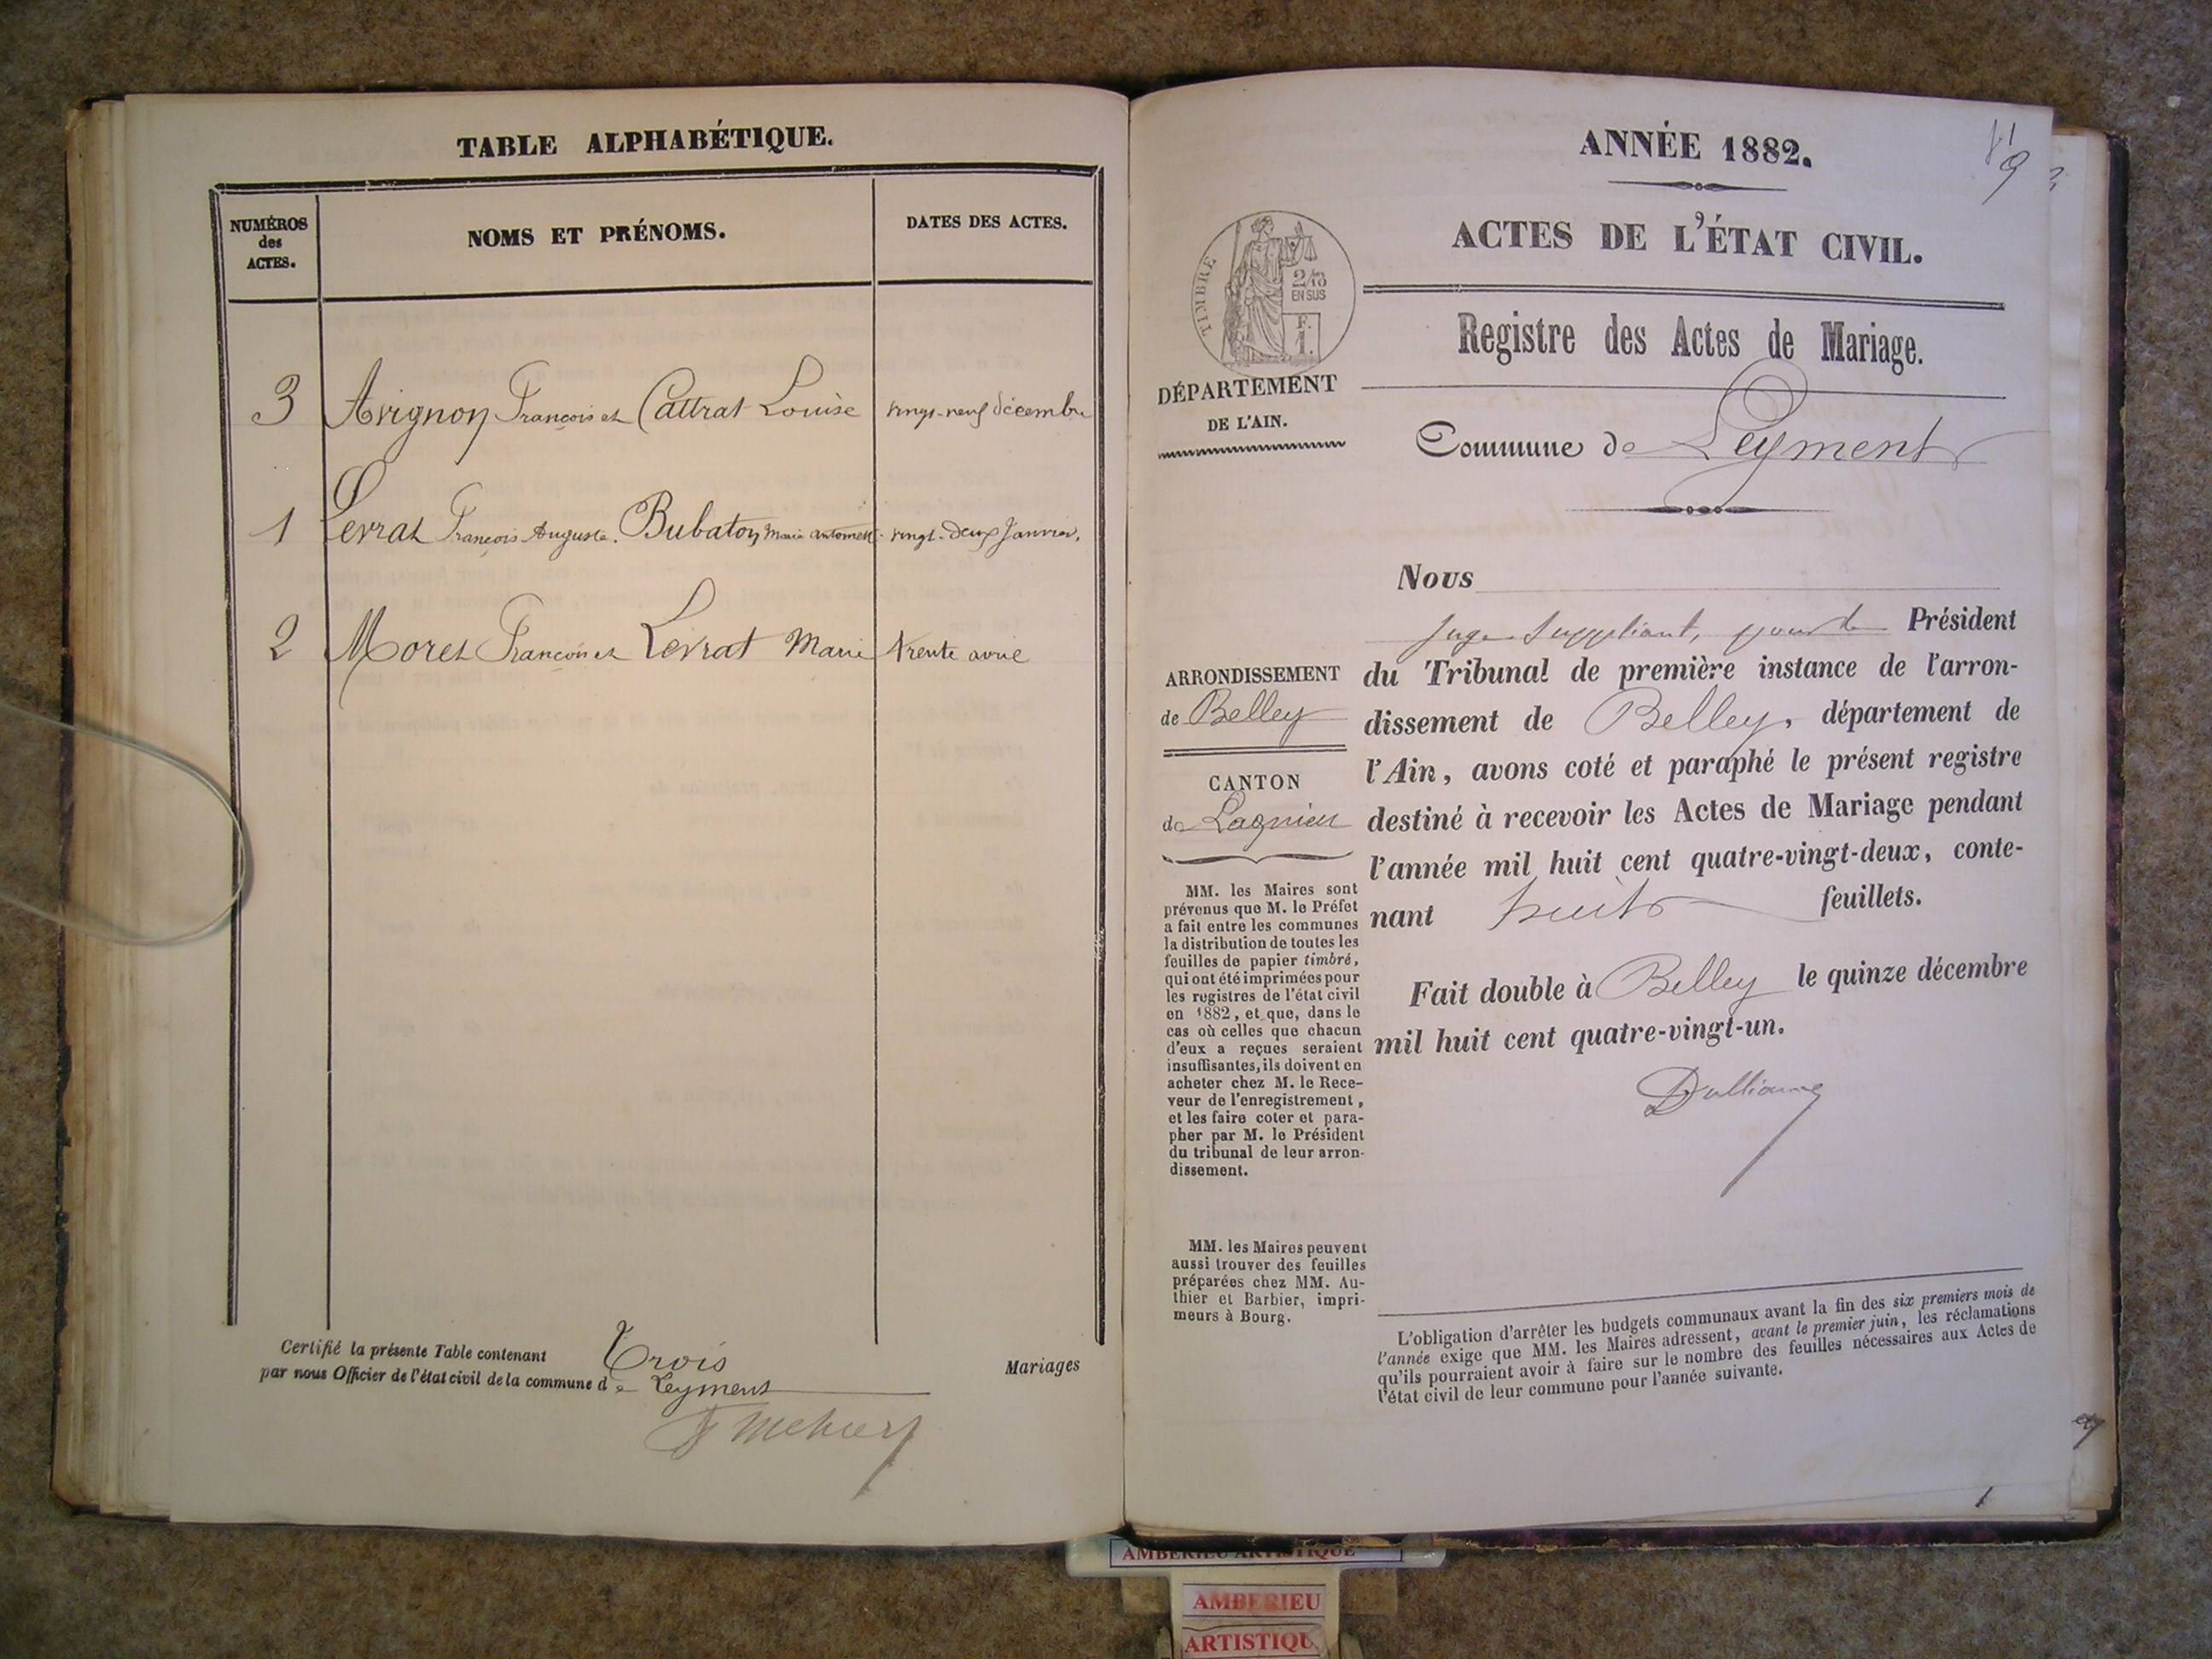 TABLE ALPHABÉTIQUE.
NUMÉROS
des
ACTES.
NOMS ET PRÉNOMS.
DATES DES ACTES.
3 Avignon François et Cattrat Louise vingt-neuf décembre
1 Levrat François Auguste. Bubaton Marie antomett vingt-deux Janvier.
2 Moret François et Levrat Marie trente avril
Certifié la présente Table contenant Trois Mariages
par nous Officier de l'état civil de la commune de Leyment
ANNÉE 1882.
ACTES DE L'ÉTAT CIVIL.
TIMBRE
2/10
EN SUS
F.
1.
Registre des Actes de Mariage.
DÉPARTEMENT
DE L'AIN.
Commune de Leyment
Nous
Juge Suppléant, pour le Président
du Tribunal de première instance de l'arron-
dissement de Belley, département de
l'Ain, avons coté et paraphé le présent registre
destiné à recevoir les Actes de Mariage pendant
l'année mil huit cent quatre-vingt-deux, conte-
nant huit feuillets.
Fait double à Belley le quinze décembre
mil huit cent quatre-vingt-un.
ARRONDISSEMENT
de Belley
CANTON
de Lagnieu
MM. les Maires sont
prévenus que M. le Préfet
a fait entre les communes
la distribution de toutes les
feuilles de papier timbré,
qui ont été imprimées pour
les registres de l'état civil
en 1882, et que, dans le
cas où celles que chacun
d'eux a reçues seraient
insuffisantes, ils doivent en
acheter chez M. le Rece-
veur de l'enregistrement,
et les faire coter et para-
pher par M. le Président
du tribunal de leur arron-
dissement.
MM. les Maires peuvent
aussi trouver des feuilles
préparées chez MM. Au-
thier et Barbier, impri-
meurs à Bourg.
L'obligation d'arrêter les budgets communaux avant la fin des six premiers mois de
l'année exige que MM. les Maires adressent, avant le premier juin, les réclamations
qu'ils pourraient avoir à faire sur le nombre des feuilles nécessaires aux Actes de
l'état civil de leur commune pour l'année suivante.
1
AMBERIEU ARTISTIQUE
AMBERIEU
ARTISTIQU